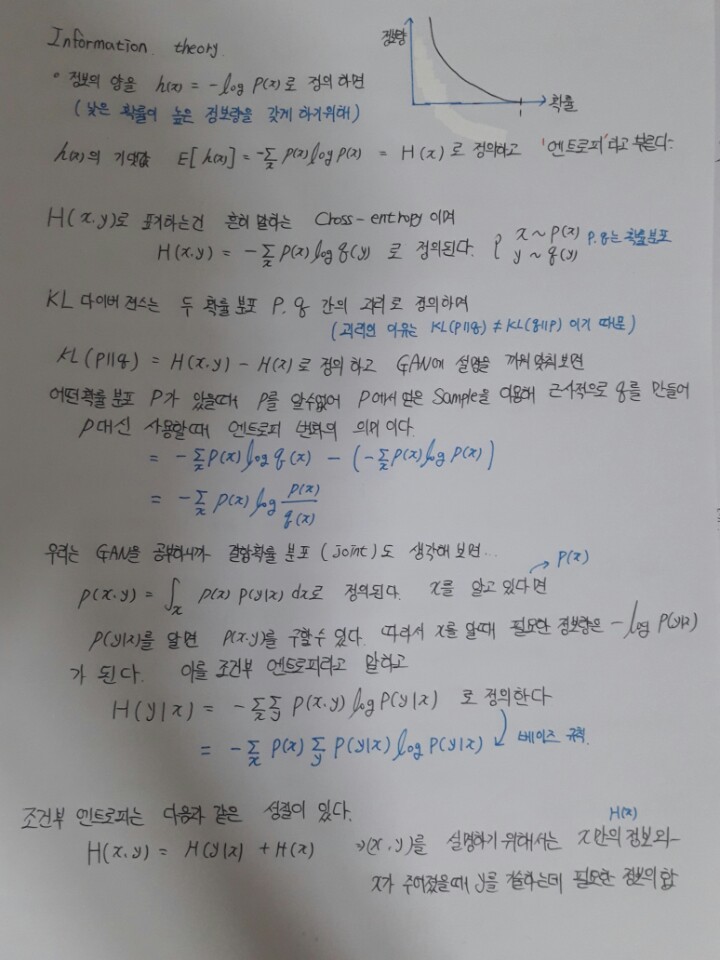 Information theory.
정보량
확률
1
◦ 정보의 양을 h(x) = -log P(x)로 정의하면
(낮은 확률이 높은 정보량을 갖게 하기위해)
h(x)의 기댓값 E[h(x)] = -∑x P(x)log P(x) = H(x)로 정의하고 '엔트로피'라고 부른다.
H(x.y)로 표기하는건 흔히 말하는 Cross-entropy 이며
H(x.y) = -∑x P(x) log q(y) 로 정의된다. { x ~ p(x) y ~ q(y) P.q는 확률분포
KL 다이버전스는 두 확률 분포 P.q 간의 괴리로 정의하며
(괴리인 이유는 KL(P||q) ≠ KL(q||P) 이기 때문)
KL(P||q) = H(x.y) - H(x)로 정의하고 GAN에 설명을 끼워 맞춰보면
어떤확률 분포 P가 있을때 P를 알수없어 P에서 얻은 Sample을 이용해 근사적으로 q를 만들어
P대신 사용할때 엔트로피 변화의 의미이다.
= -∑x P(x) log q(x) - (-∑x P(x) log P(x))
= -∑x P(x) log P(x)/q(x)
우리는 GAN을 공부하니까 결합확률 분포 (joint)도 생각해 보면...
P(x)
P(x.y) = ∫x P(x) P(y|x) dx로 정의된다. x를 알고 있다면
P(y|x)를 알면 P(x.y)를 구할수 있다. 따라서 x를 알때 필요한 정보량은 -log P(y|x)
가 된다. 이를 조건부 엔트로피라고 말하고
H(y|x) = -∑x∑y P(x.y) log P(y|x) 로 정의한다
= -∑x P(x) ∑y P(y|x) log P(y|x) 베이즈 규칙.
조건부 엔트로피는 다음과 같은 성질이 있다.
H(x)
H(x.y) = H(y|x) + H(x) →(x.y)를 설명하기 위해서는 x만의 정보와
x가 주어졌을때 y를 기술하는데 필요한 정보의 합